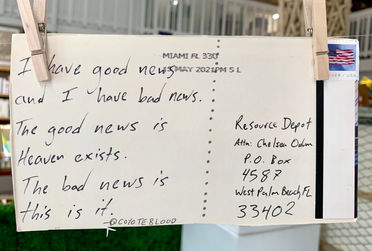 MIAMI FL 330
MAY 2021 PM 5 L
I have good news
and I have bad news.
The good news is
Heaven exists.
The bad news is
this is it.
@COYOTEBLOOD
Resource Depot
Attn: Chelsea Odum
P.O. Box
4587
West Palm Beach, FL
33402